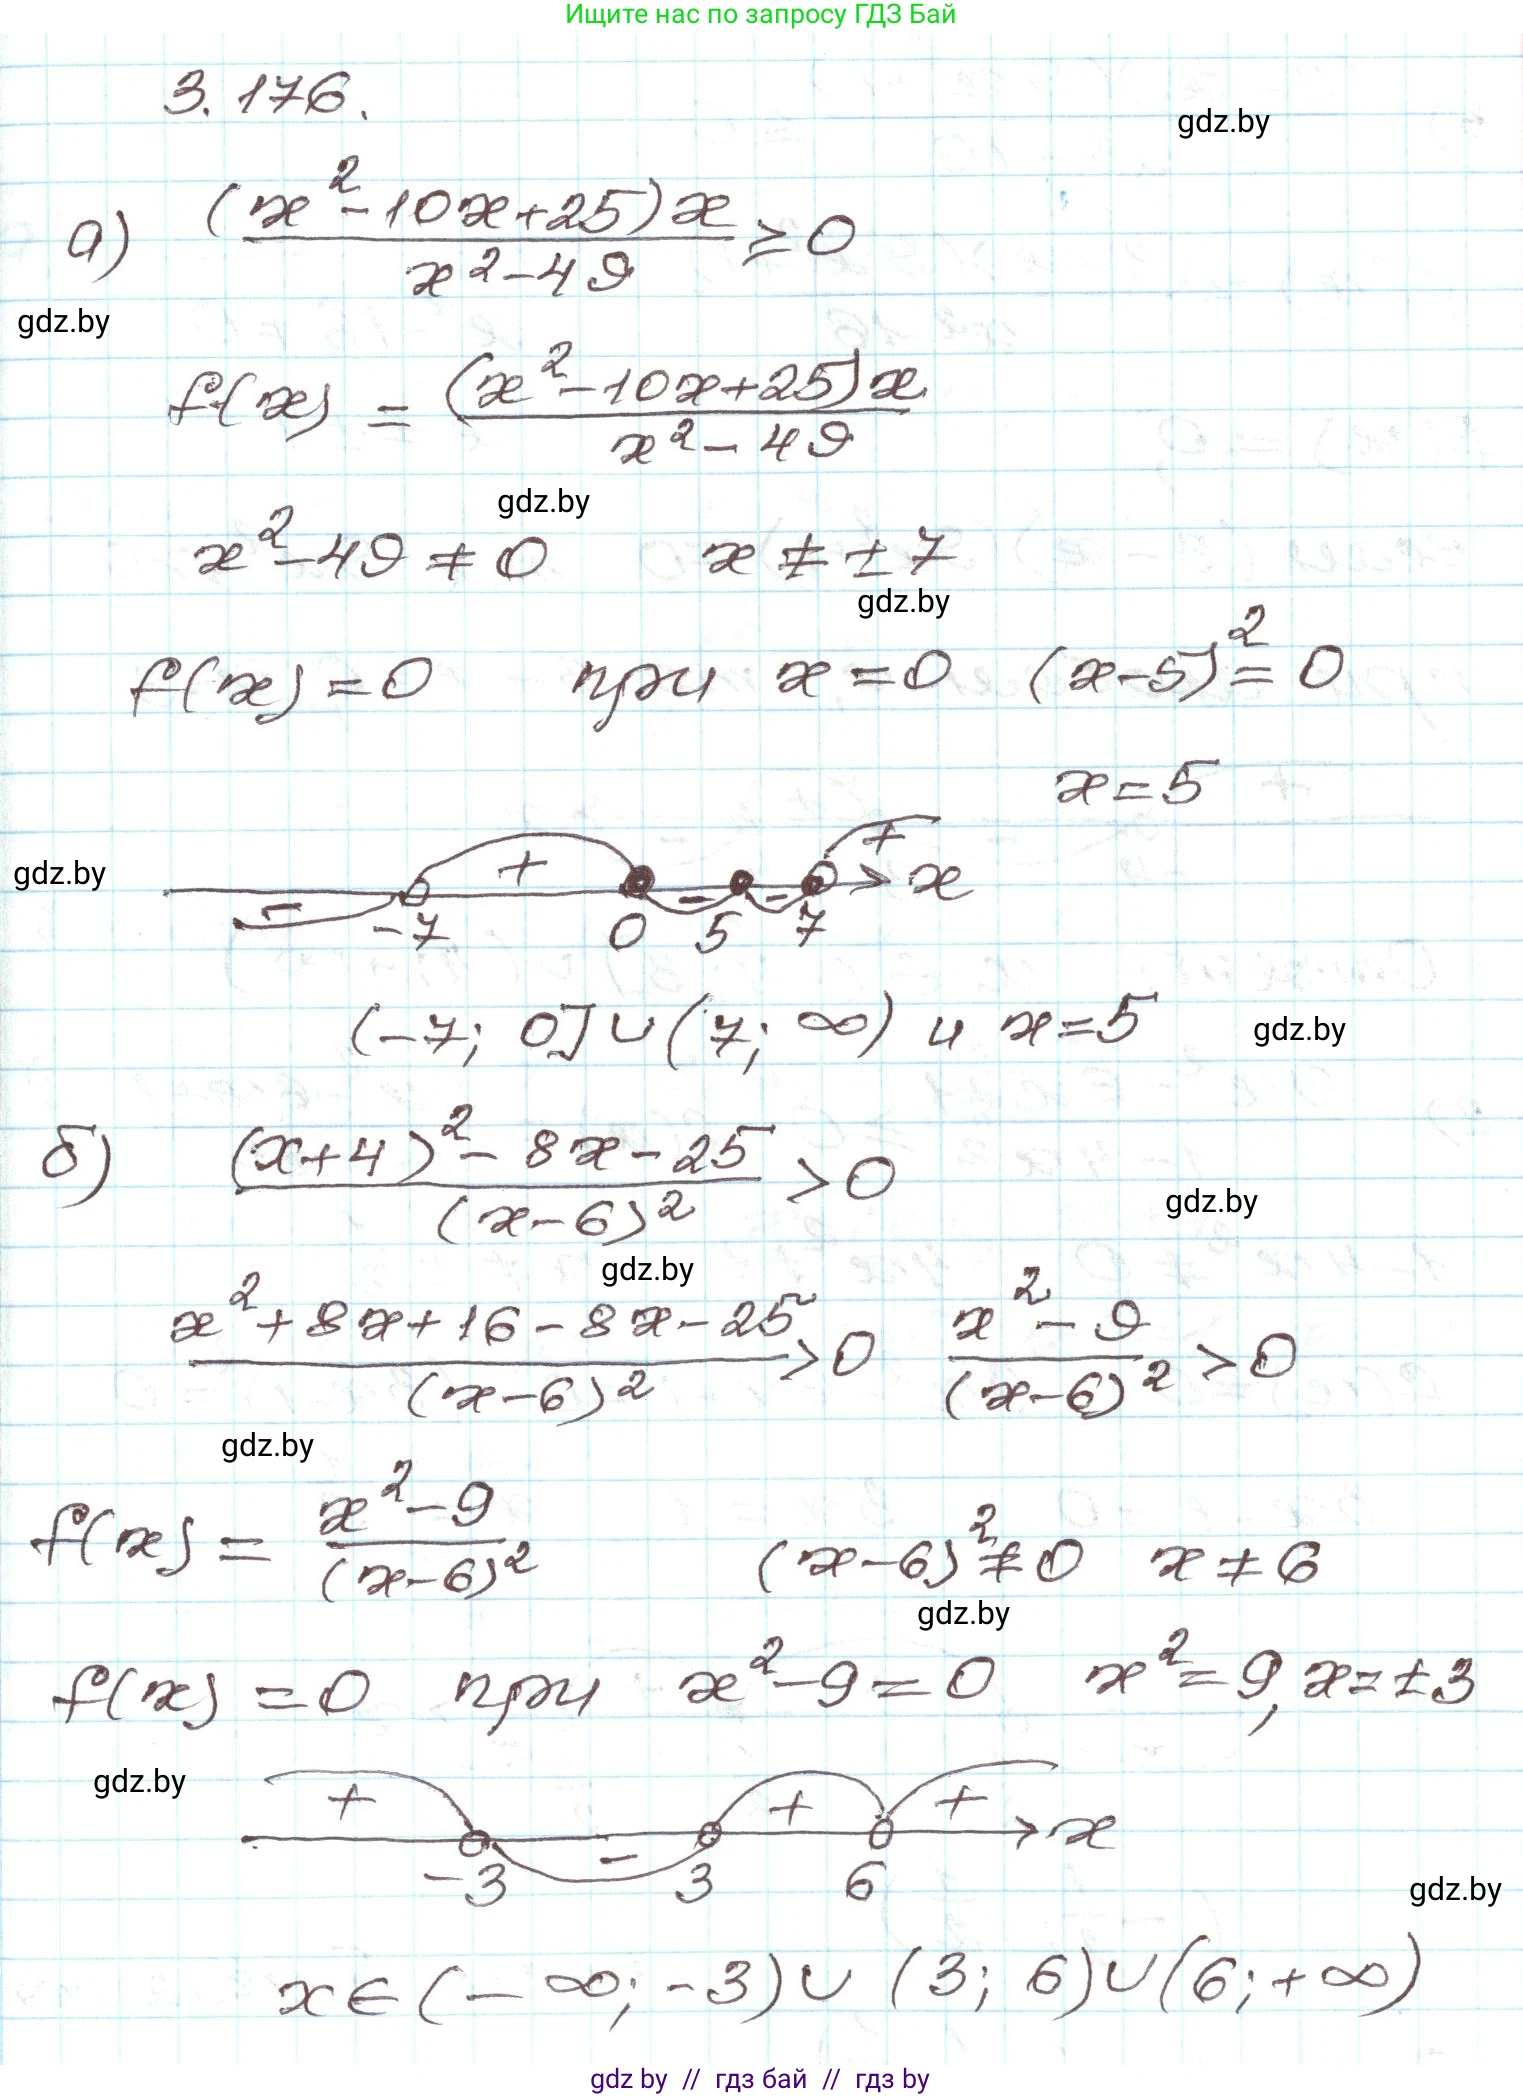 Ищите нас по запросу ГДЗ Бай
3.176.
gdz.by
а) (x²-10x+25)x / x²-49 ≥ 0
gdz.by
f(x) = (x²-10x+25)x / x²-49
gdz.by
x²-49≠0 x≠±7
gdz.by
f(x)=0 при x=0 (x-5)²=0
x=5
gdz.by
- + - - + x
-7 0 5 7
(-7; 0]∪(7; ∞) и x=5
gdz.by
б) (x+4)²-8x-25 / (x-6)² >0
gdz.by
gdz.by
x²+8x+16-8x-25 / (x-6)² >0 x²-9 / (x-6)² >0
gdz.by
f(x) = x²-9 / (x-6)² (x-6)²≠0 x≠6
gdz.by
f(x)=0 при x²-9=0 x²=9, x=±3
gdz.by
+ - + + x
-3 3 6
gdz.by
x∈(-∞; -3)∪(3; 6)∪(6; +∞)
gdz.by // гдз бай // гдз by